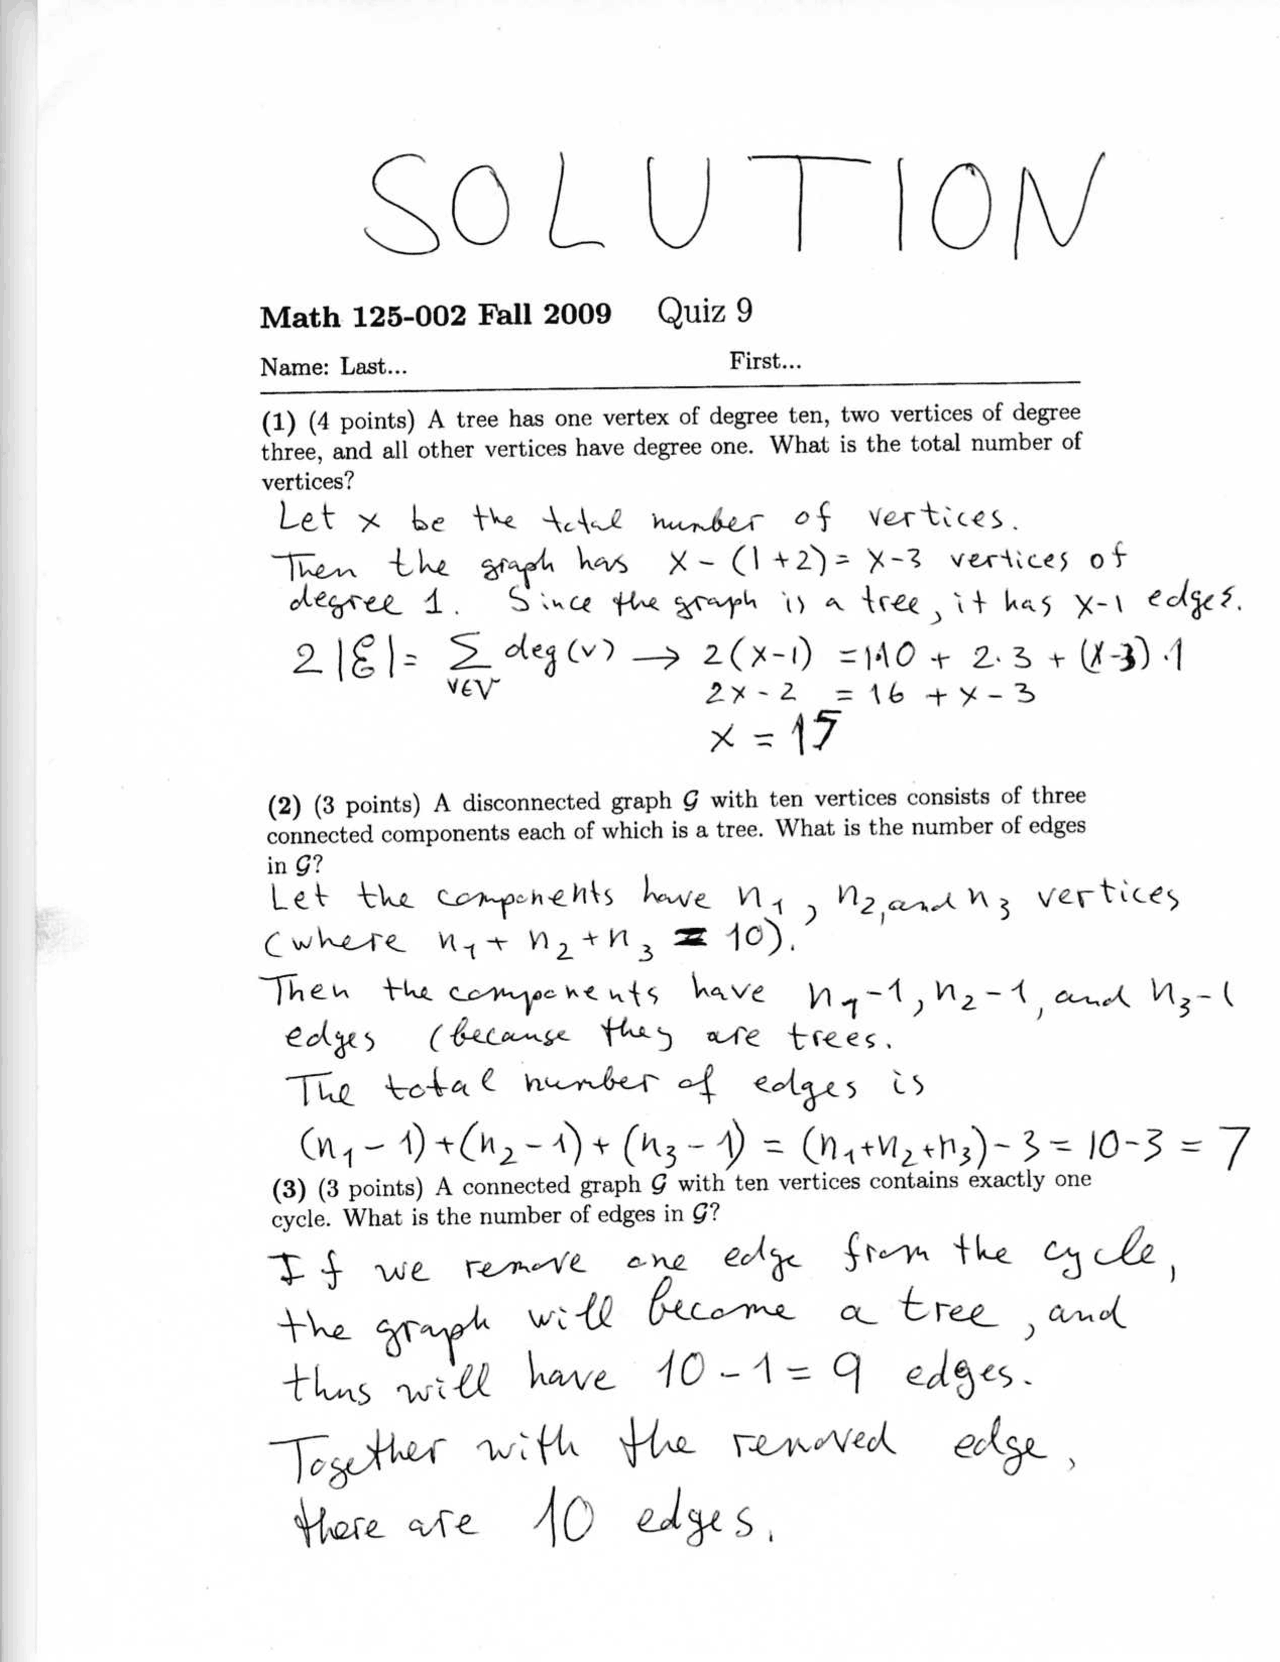 SOLUTION
Math 125-002 Fall 2009 Quiz 9
Name: Last... First...
(1) (4 points) A tree has one vertex of degree ten, two vertices of degree
three, and all other vertices have degree one. What is the total number of
vertices?
Let x be the total number of vertices.
Then the graph has x - (1+2) = x-3 vertices of
degree 1. Since the graph is a tree, it has x-1 edges.
2|ℰ| = ∑ deg(v) → 2(x-1) = 1·10 + 2·3 + (x-3)·1
v∈V 2x-2 = 16 + x - 3
x = 15
(2) (3 points) A disconnected graph 𝒢 with ten vertices consists of three
connected components each of which is a tree. What is the number of edges
in 𝒢?
Let the components have n₁, n₂, and n₃ vertices
(where n₁ + n₂ + n₃ = 10).
Then the components have n₁-1, n₂-1, and n₃-1
edges (because they are trees.
The total number of edges is
(n₁-1)+(n₂-1)+(n₃-1) = (n₁+n₂+n₃)-3 = 10-3 = 7
(3) (3 points) A connected graph 𝒢 with ten vertices contains exactly one
cycle. What is the number of edges in 𝒢?
If we remove one edge from the cycle,
the graph will become a tree, and
thus will have 10-1=9 edges.
Together with the removed edge,
there are 10 edges.